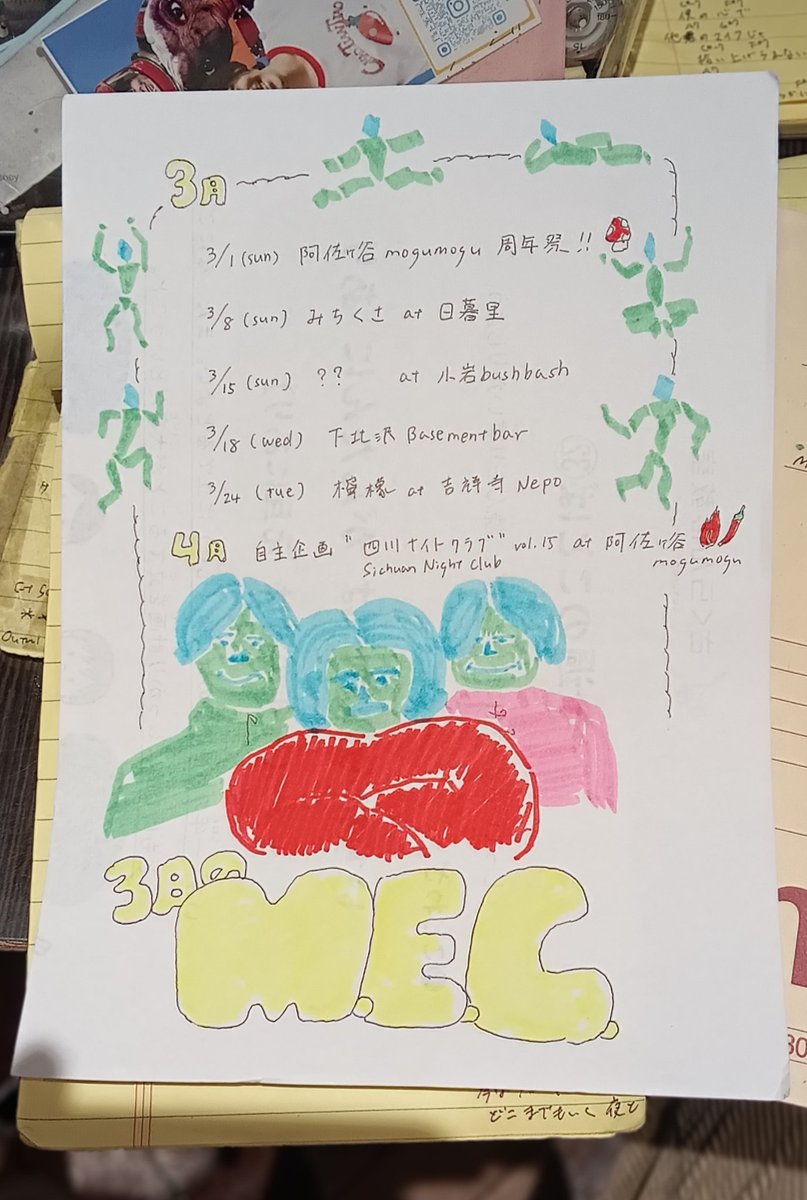 3月
3/1 (sun) 阿佐ヶ谷 mogumogu 周年祭!!
3/8 (sun) みちくさ at 日暮里
3/15 (sun) ?? at 小岩bushbash
3/18 (wed) 下北沢 Basementbar
3/24 (tue) 檸檬 at 吉祥寺 Nepo
4月 自主企画 "四川ナイトクラブ" vol.15 at 阿佐ヶ谷
Sichuan Night Club mogumogu
3月の
M.E.C.
どこまでもいく 夜と